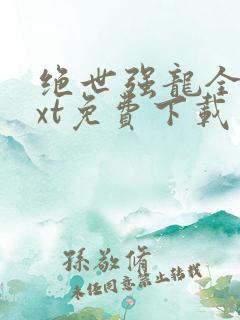 绝世强龙全
xt免費下載
孫敬脩
未经同意禁止转载